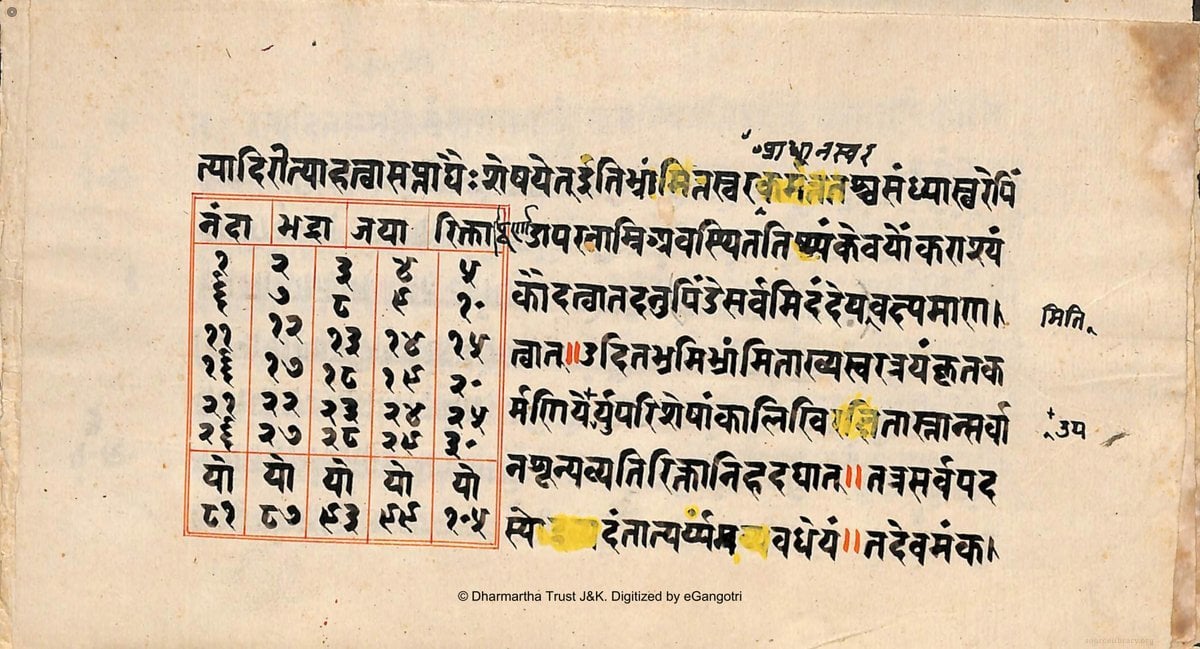 त्यादिरीत्याहत्वासप्ताद्यैःशेषयेत् इतिभ्रांमितस्वर श्चसंध्यास्वरेपिं
नंदा भद्रा जया रिक्ता पूर्णा
१ २ ३ ४ ५
६ ७ ८ ९ १०
११ १२ १३ १४ १५
१६ १७ १८ १९ २०
२१ २२ २३ २४ २५
२६ २७ २८ २९ ३०
यो यो यो यो यो
८१ ८७ ९३ ९९ १०५
केवर्योंकराश्यं
कौदत्वातदनुपिंडेसर्वमिदंदेय वक्ष्यमाण।
मिति
त्वात्॥उदितभ्रमिभ्रांमिताख्यस्वरत्रयंकृतक
परिशेषांकालिखि तास्तान्सर्वा
उप
नशून्यव्यतिरिक्तानिहदद्यात्॥तत्रसर्वपद
स्ये दंतात्पर्य्य वधेयं॥तदेवमंक।
© Dharmartha Trust J&K. Digitized by eGangotri
sourcelibrary.org